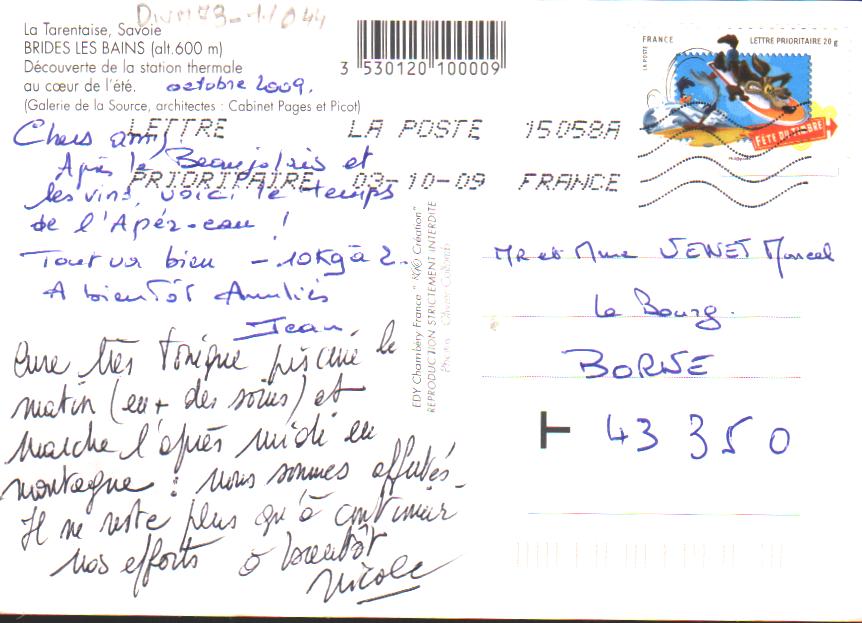 La Tarentaise, Savoie
BRIDES LES BAINS (alt.600 m)
Découverte de la station thermale
au cœur de l'été. octobre 2009.
(Galerie de la Source, architectes : Cabinet Pages et Picot)
3 530120 100009
FRANCE LETTRE PRIORITAIRE 20 g
LA POSTE
FÊTE DU TIMBRE
LETTRE LA POSTE 15058A
PRIORITAIRE 03-10-09 FRANCE
Chers amis
Après le Beaujolais et
les vins, voici le temps
de l'Apéz-eau !
Tout va bien - 10Kg à 2.
A bientôt Amitiés
Jean.
Cure très tonique piscine le
matin (en + des soins) et
marche l'après midi en
montagne : nous sommes affutés.
Il ne reste plus qu'à continuer
nos efforts à bientôt
Nicole
EDY Chambéry France " Création"
REPRODUCTION STRICTEMENT INTERDITE
MR et Mme JENET Marcel
Le Bourg.
BORNE
43 350